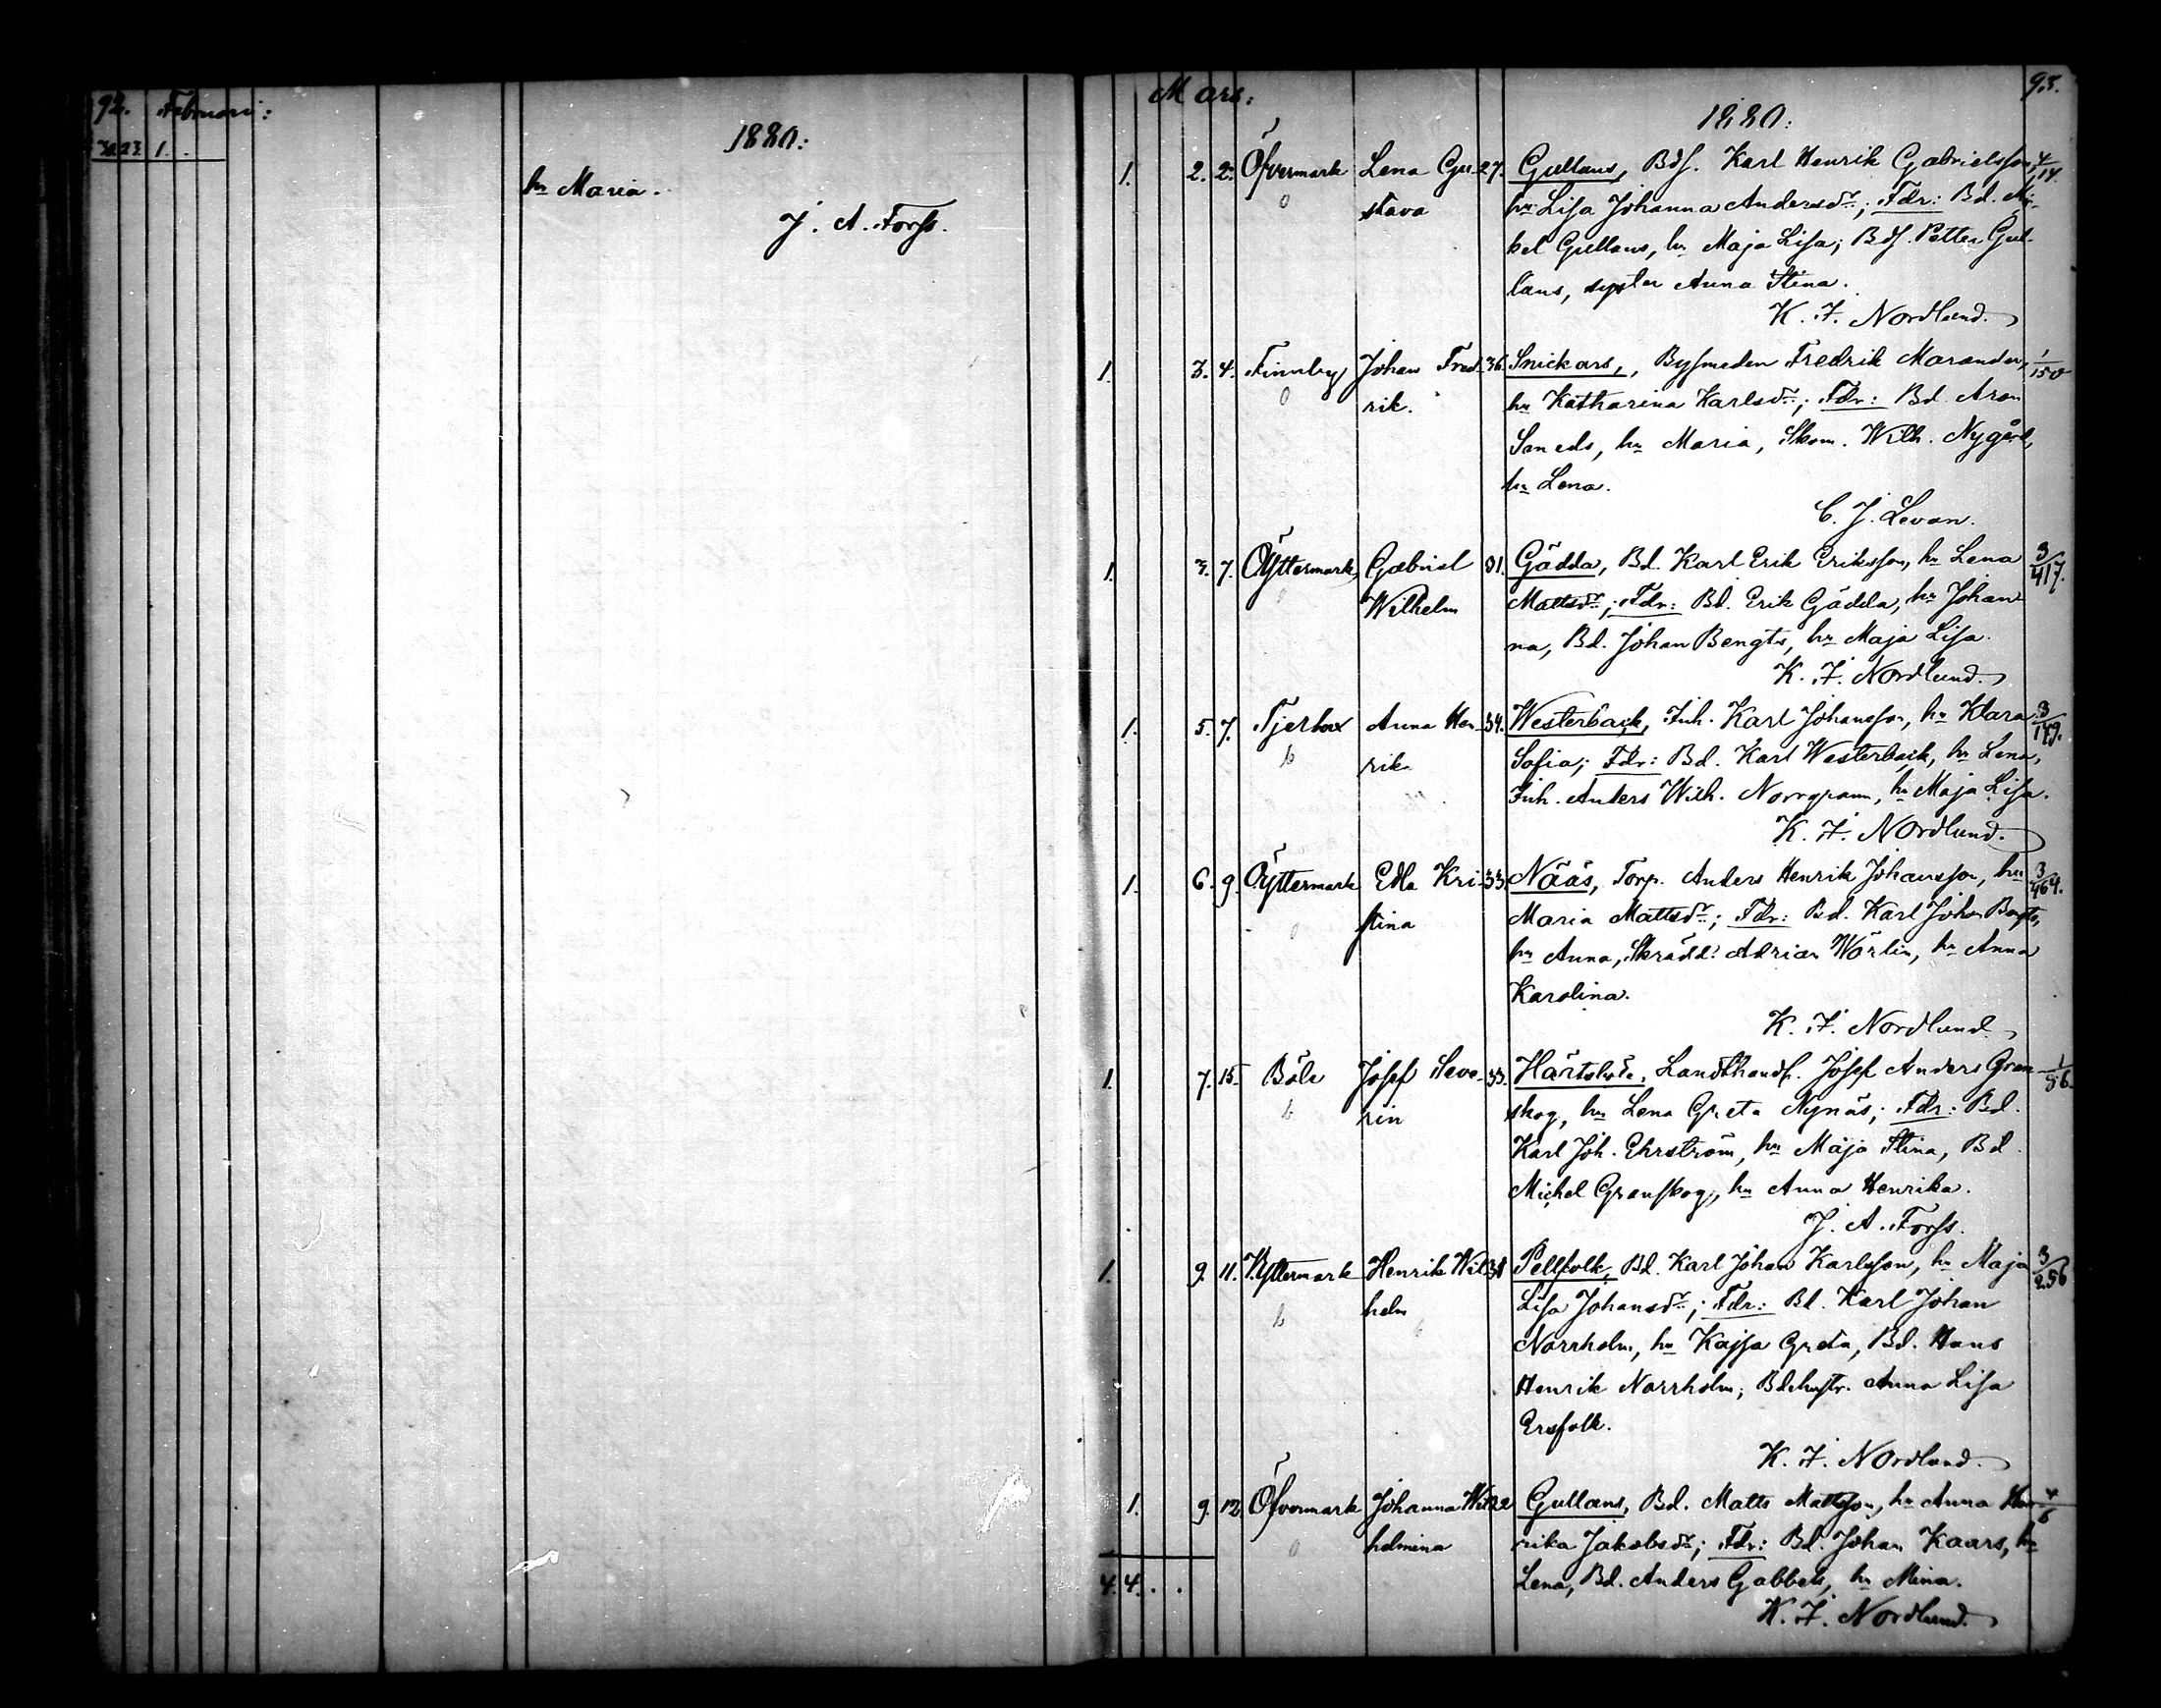 92. Februari:
1880:
hu Maria.
J. A. Forss.
Mars:
93.
1880:
1. 2. 2. Öfvermark Lena Gu- 27. Gullans, Bds. Karl Henrik Gabrielsson, 4/14.
stava hu Lisa Johanna Andersdr.; Fdr: Bd. Mi-
kel Gullans, hu Maja Lisa; Bds. Petter Gul-
lans, syster Anna Stina.
K. F. Nordlund.
1. 3. 4. Finnby Johan Fred- 36. Snickars, Bysmeden Fredrik Marander, 1/150
rik. hu Katharina Karlsdr.; Fdr: Bd. Aron
Smeds, hu Maria, Skom. Wilh. Nygård,
hu Lena.
C. J. Levan.
1. 3. 7. Yttermark Gabriel 31. Gädda, Bd. Karl Erik Eriksson, hu Lena 3/417.
Wilhelm Mattsdr.; Fdr: Bd. Erik Gädda, hu Johan-
na, Bd. Johan Bengts, hu Maja Lisa.
K. F. Nordlund.
1. 5. 7. Tjerlax Anna Hen- 34. Westerback, Inh. Karl Johansson, hu Klara 3/149.
rik Sofia; Fdr: Bd. Karl Westerback, hu Lena,
Inh. Anders Wilh. Norrgrann, hu Maja Lisa.
K. F. Nordlund.
1. 6. 9. Yttermark Edla Kri- 33. Nääs, Torp. Anders Henrik Johansson, hu 3/464.
stina Maria Mattsdr.; Fdr: Bd. Karl Johan Bengts,
hu Anna, Skrädd. Adrian Wörlin, hu Anna
Karolina.
K. F. Nordlund.
1. 7. 15. Böle Josef Seve- 33. Härtsböle, Landthandl. Josef Anders Gran- 1/86.
rin skog, hu Lena Greta Nynäs; Fdr: Bd.
Karl Joh. Ehrström, hu Maja Stina, Bd.
Michel Granskog, hu Anna Henrika.
J. A. Forss.
1. 9. 11. Yttermark Henrik Wil- 38 Pellfolk, Bd. Karl Johan Karlsson, hu Maja 3/256
helm Lisa Johansdr.; Fdr: Bd. Karl Johan
Norrholm, hu Kajsa Greta, Bd. Hans
Henrik Norrholm, Bdehustr. Anna Lisa
Ersfolk.
K. F. Nordlund.
1. 9. 12. Öfvermark Johanna Wil- 22 Gullans, Bd. Matts Mattsson, hu Anna Hen- 4/6
helmina rika Jakobsdr.; Fdr: Bd. Johan Kaars, hu
4. 4. . . Lena, Bd. Anders Gabbels, hu Mina.
K. F. Nordlund.